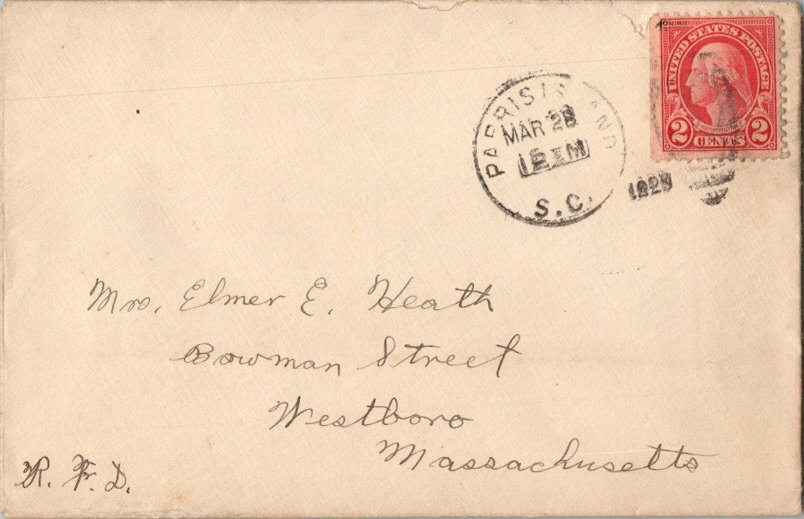 UNITED STATES POSTAGE
2 CENTS 2
PARRIS ISLAND
MAR 28
S.C.
Mrs. Elmer E. Heath
Bowman Street
Westboro
Massachusetts
R. F. D.